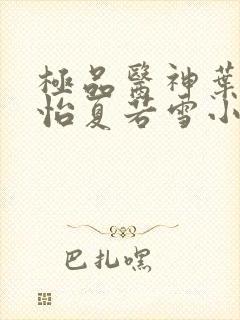 極品醫神葉
怡夏若雪小
巴扎嘿